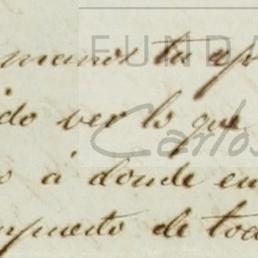 manos tu ap
do ver lo que
o á donde en
mpuesto de tod
FUNDA
Carlos